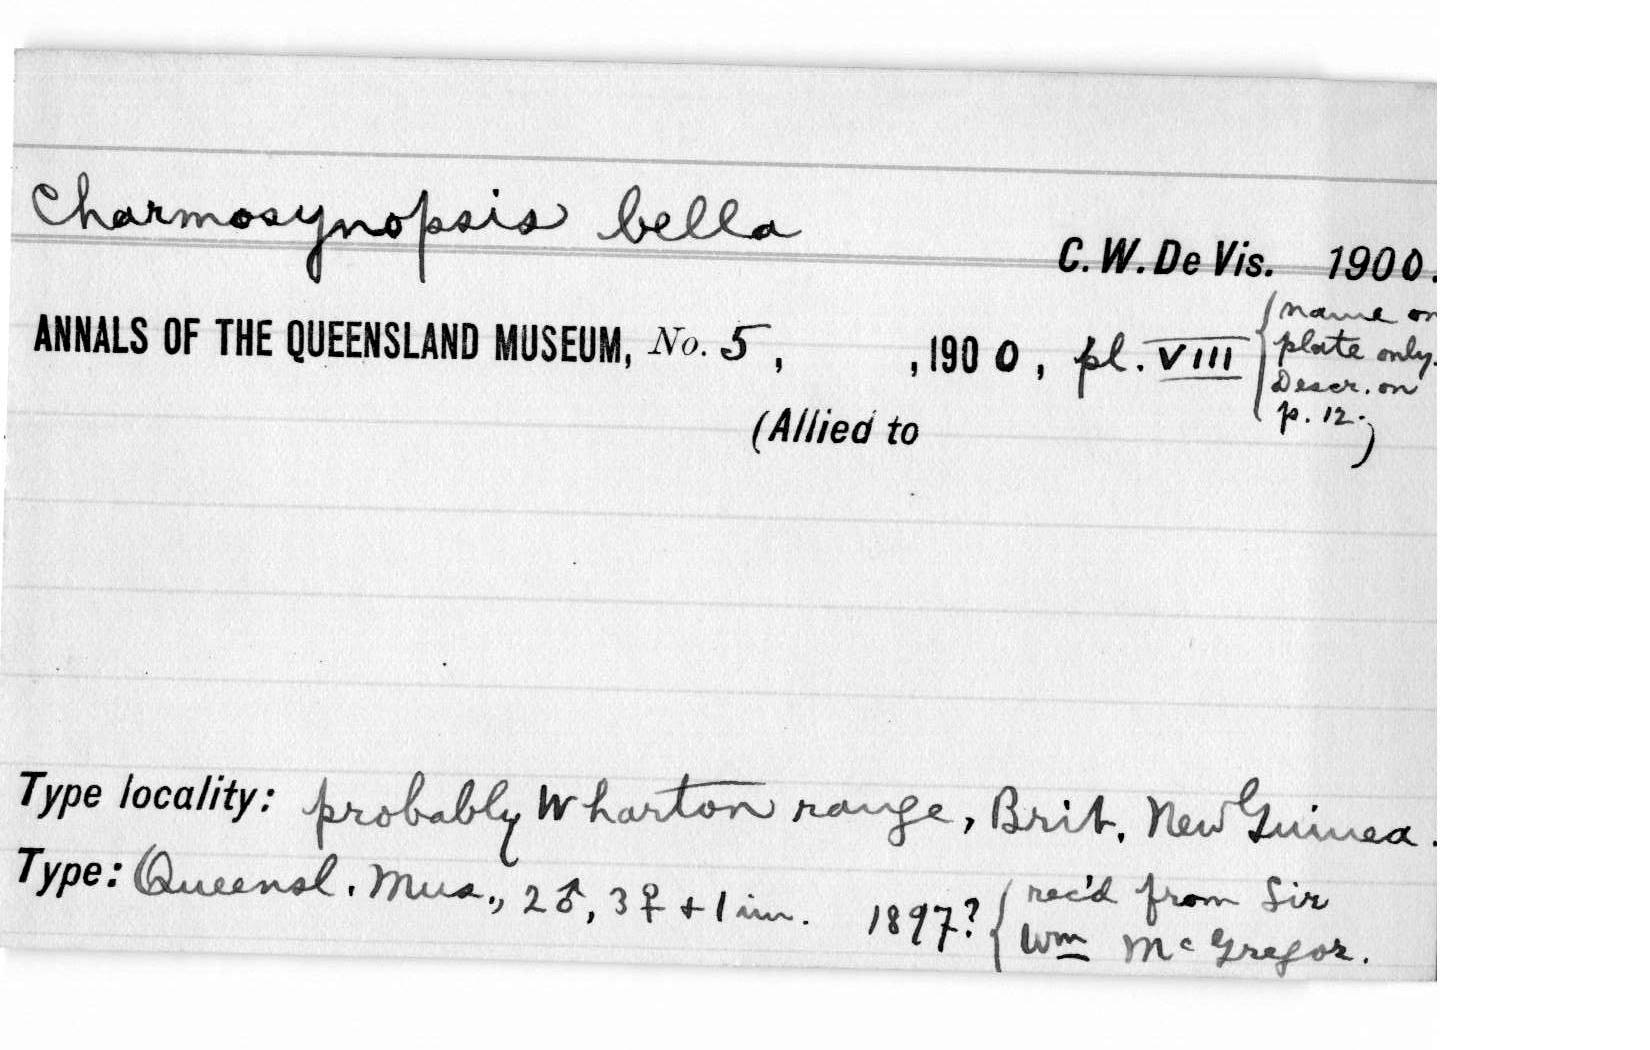 Charmosynopsis bella
C. W. De Vis. 1900.
ANNALS OF THE QUEENSLAND MUSEUM, No. 5, , 1900, pl. VIII { name on
plate only.
Descr. on
p. 12.)
(Allied to
Type locality: probably Wharton range, Brit. New Guinea.
Type: Queensl. Mus., 2♂, 3♀ + 1 im. 1897? { rec'd from Sir
Wm McGregor.